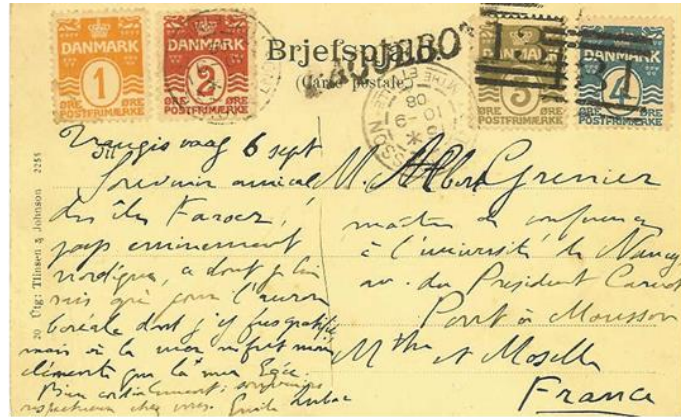 DANMARK
1
ØRE ØRE
POSTFRIMÆRKE
DANMARK
2
ØRE ØRE
POSTFRIMÆRKE
DANMARK
3
ØRE ØRE
POSTFRIMÆRKE
DANMARK
4
ØRE ØRE
POSTFRIMÆRKE
PAQUEBOT
(Carte postale.)
10-9
08
20 Utg: Thinsen & Johnson 2255
6 sept
Souvenir amical
des îles Faroer,
pays éminemment
nordique, a dont je
l'aurore
boréale dont j'y fus gratifié,
mais où la mer me fut moins
clémente que la mer Egée.
Bien cordialement; souvenirs
respectueux chez vous. Emile
M. Albert Grenier
maître de conférence
à l'université de Nancy
av. du President Carnot
Pont à Mousson
Mthe et Moselle
France